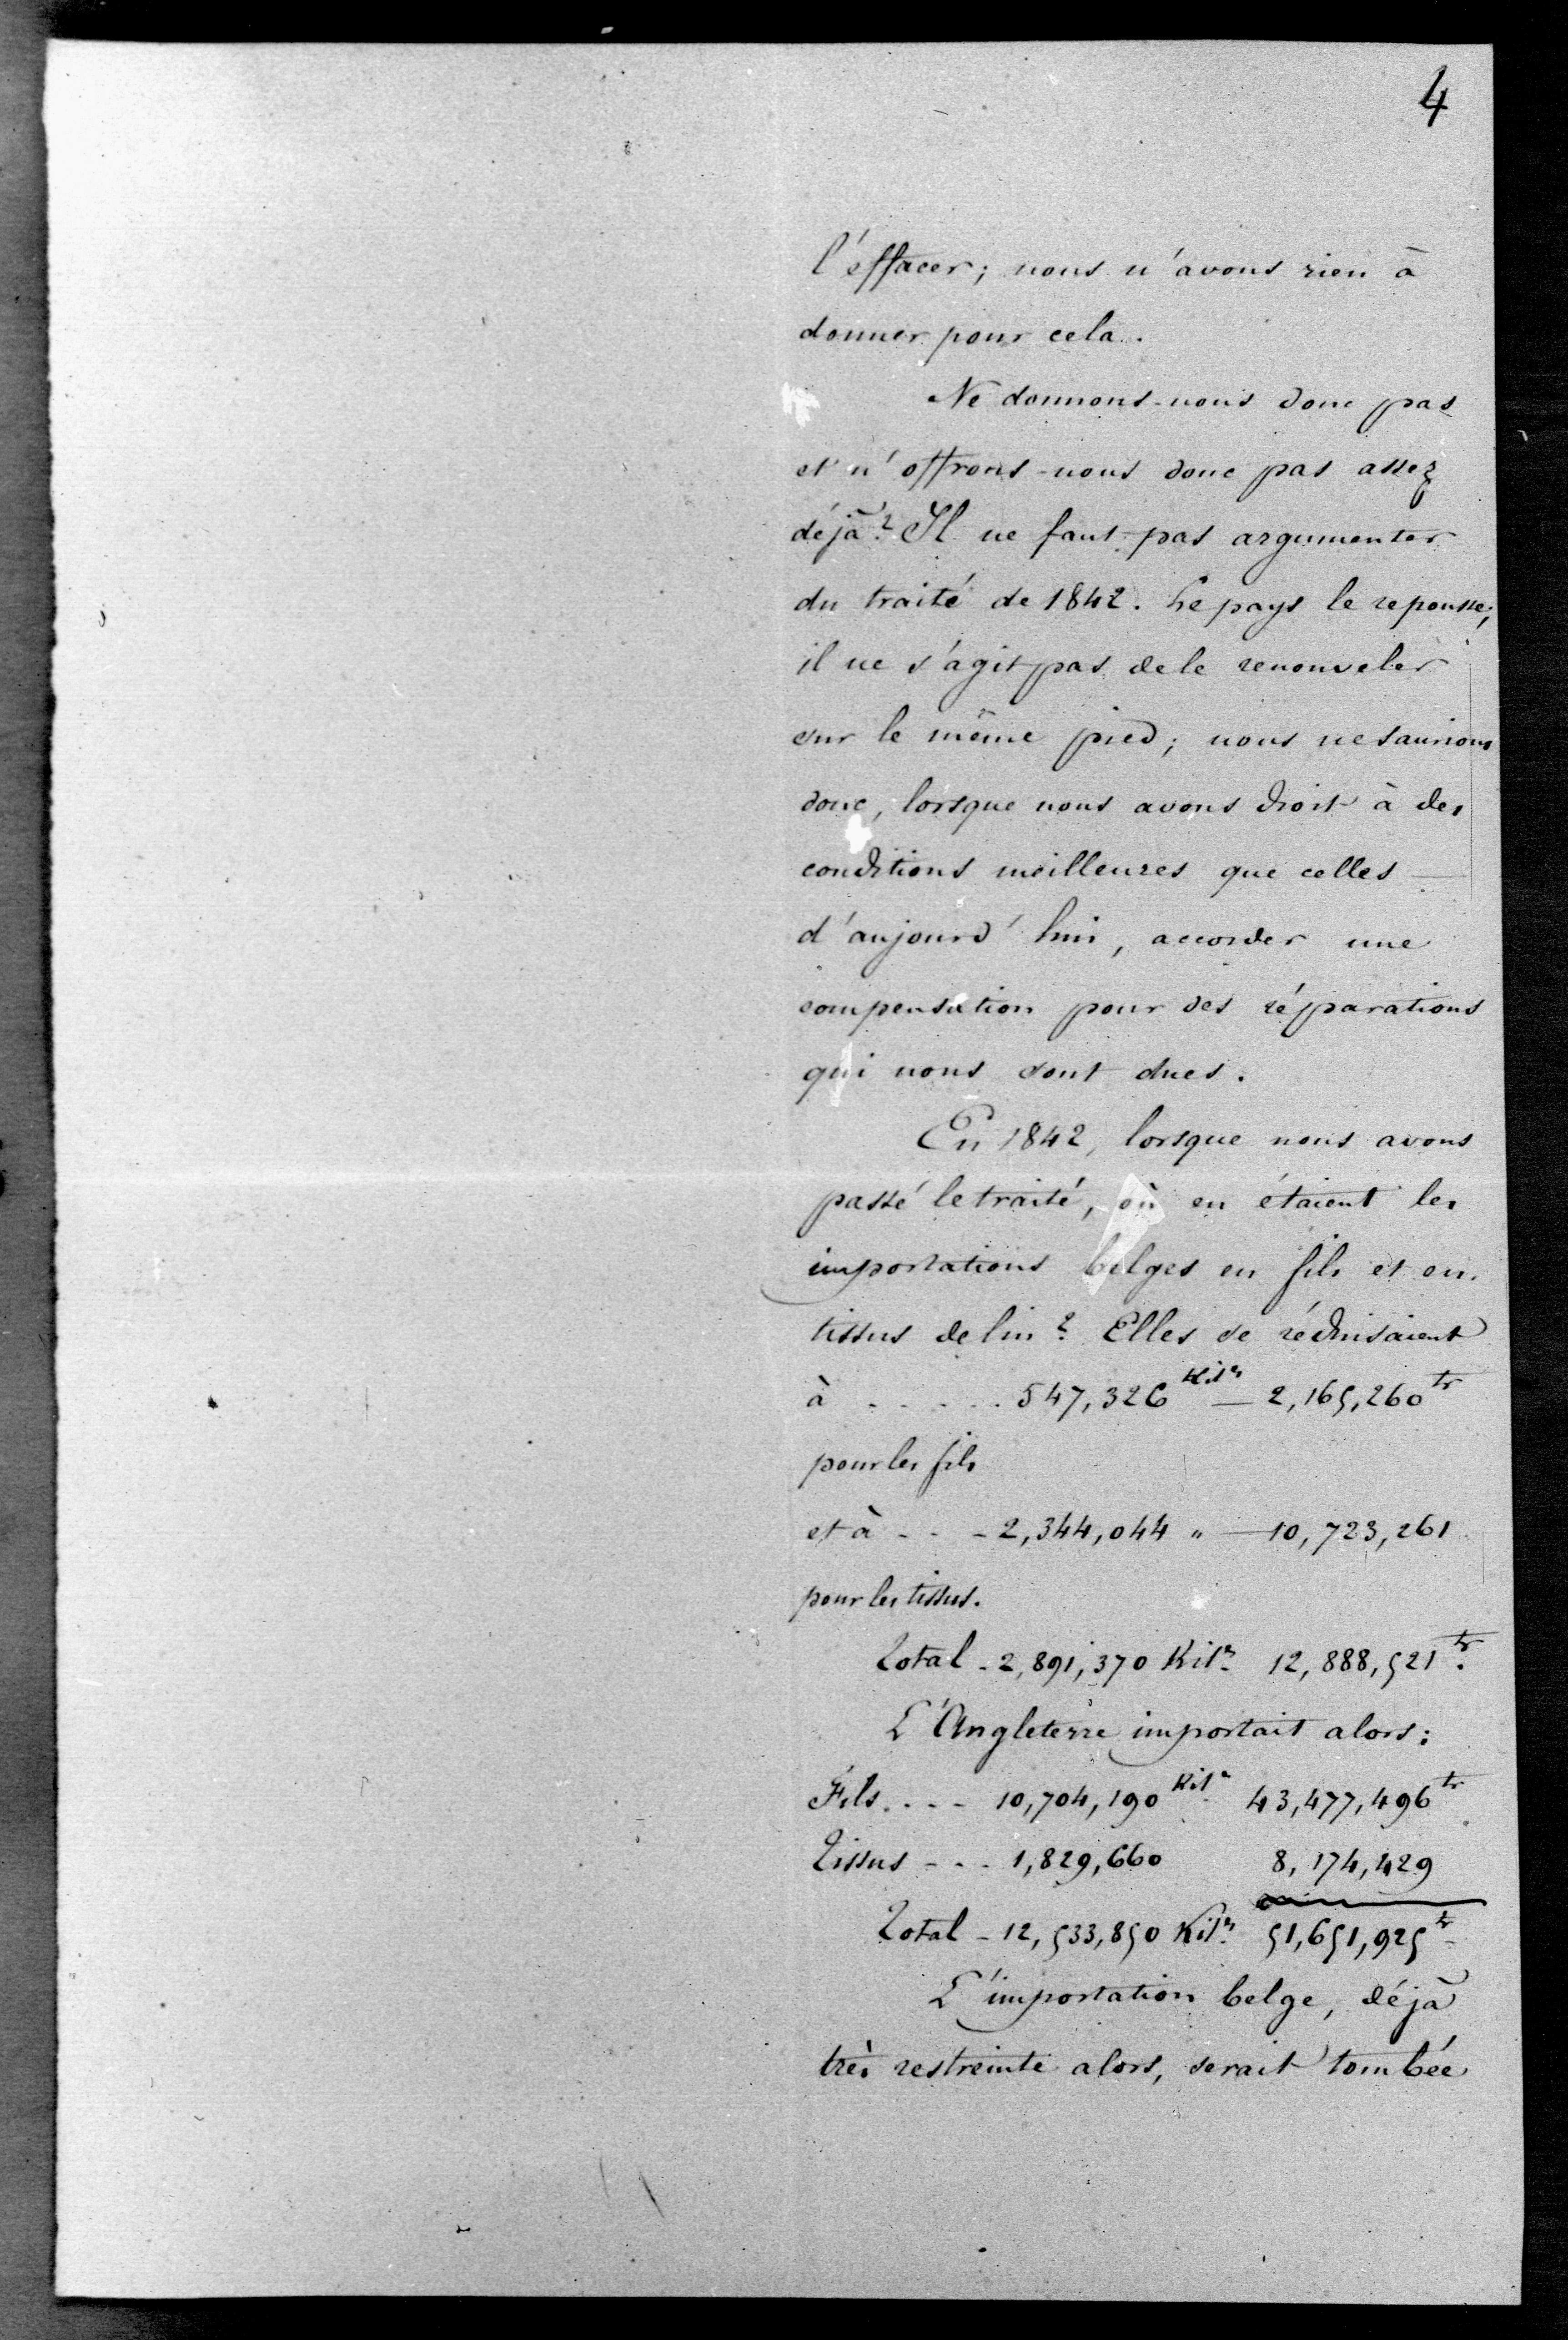 4
l'effacer; nous n'avons rien à
donner pour cela.
Ne donnons-nous donc pas
et n'offrons-nous donc pas assez
déjà? Il ne faut pas argumenter
du traité de 1842. Le pays le repousse;
il ne s'agit pas de le renouveler
sur le même pied; nous ne saurions
donc, lorsque nous avons droit à des
conditions meilleures que celles
d'aujourd'hui, accorder une
compensation pour des réparations
qui nous sont dues.
En 1842, lorsque nous avons
passé le traité, où en étaient les
importations belges en fils et en
tissus de lin? Elles se réduisaient
à . . . . . 547,326 Kil^s — 2,165,260 fr
pour les fils
et à - - - 2,344,044 " — 10,723,261
pour les tissus.
Total - 2,891,370 Kil^s. 12,888,521 fr.
L'Angleterre importait alors:
Fils. . . - 10,704,190 Kil^s. 43,477,496 fr
Tissus - . . 1,829,660 8,174,429
Total - 12,533,850 Kil^s. 51,651,925 fr
L'importation belge, déjà
très restreinte alors, serait tombée